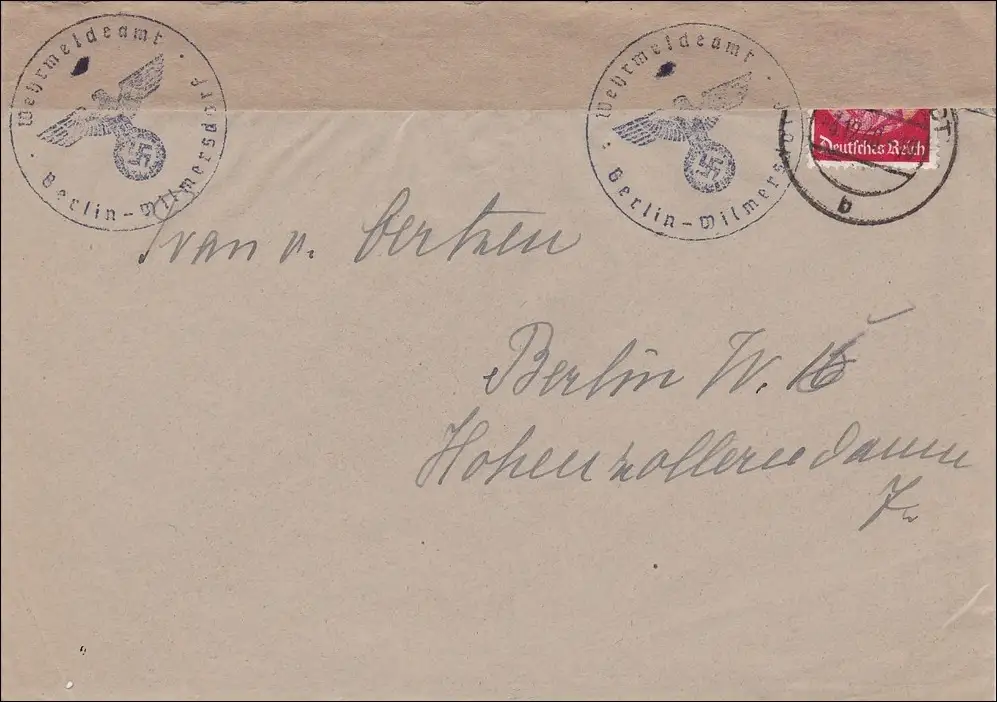 Wehrmeldeamt · Berlin-Wilmersdorf ·
Wehrmeldeamt · Berlin-Wilmersdorf ·
Deutsches Reich
b
v. Oertzen
Berlin W. 15
Hohenzollerndamm
7